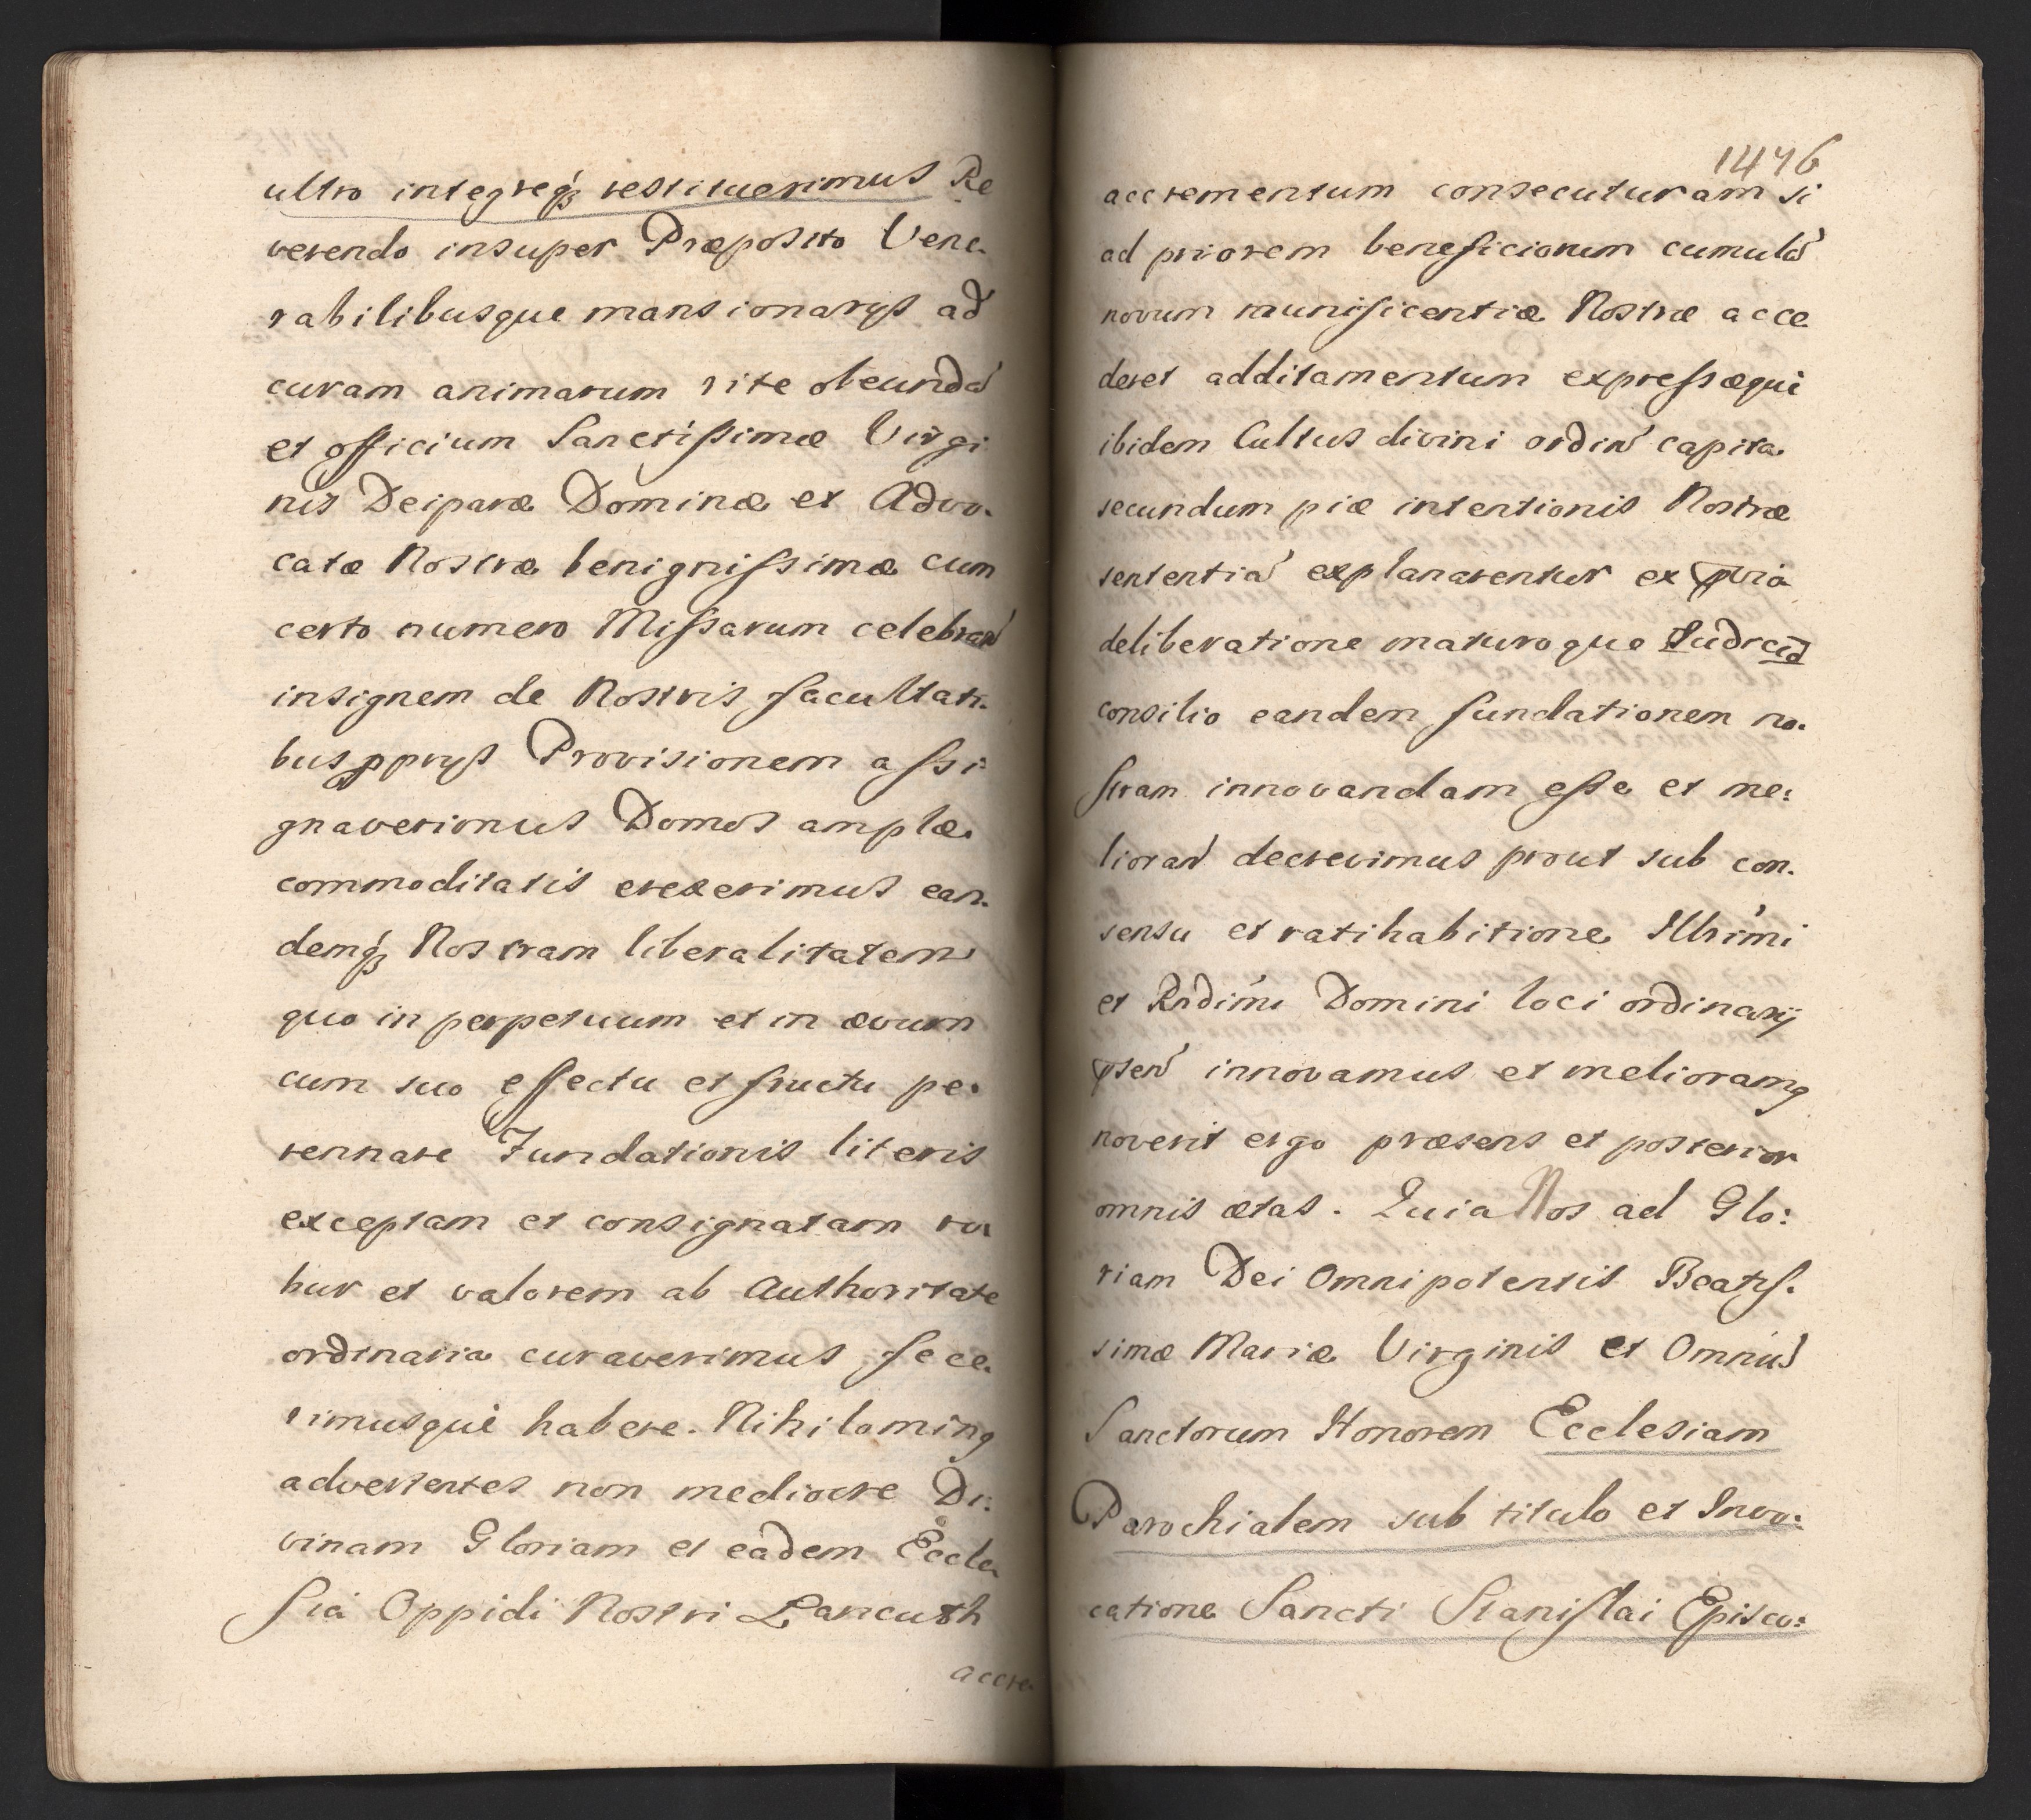 ultro integreq́ꝫ restituerimus Re
verendo insuper Præposito Vene-
rabilibusque mansionarys ad
curam animarum rite obeundã
et officium Sanctissimæ Virgi
nis Deiparæ Dominæ et Advo-
catæ Nostræ benignissimæ cum
certo numero Missarum celebran̄
insignem de Nostris facultati-
bus pprys Provisionem assi
gnaverimus Domos amplæ
commoditatis erexerimus ean-
demq́ꝫ Nostram liberalitatem
quo in perpetuum et in ævum
cum suo effectu et fructu pe-
rennare Fundationis literis
exceptam et consignatam ro
bur et valorem ab Authoritate
ordinaria curaverimus fece-
rimusque habere. Nihiloming
advertentes non mediocre Di:
vinam Gloriam et eadem Eccle
sia Oppidi Nostri Lancuth
accre-
1476
accrementum consecuturam si
ad priorem beneficiorum cumulũ
novum munificentiæ Nostræ acce
deret additamentum expressæque
ibidem Cultus divini ordin̄ capita
secundum piæ intentionis Nostræ
sententiã explanarentur ex pvia
deliberatione maturoque
consilio eandem fundationem no-
stram innovandam esse et me:
lioran̄ decrevimus prout sub con-
sensu et ratihabitione Illrimi
et Rndimi Domini loci ordinarij
psen̄ innovamus et melioramg
noverit ergo præsens et posterior
omnis ætas. Quia Nos ad Glo:
riam Dei Omnipotentis Beatis-
simæ Mariæ Virginis et Omniũ
Sanctorum Honorem Ecclesiam
Parochialem sub titulo et Invo:
catione Sancti Stanislai Episco: